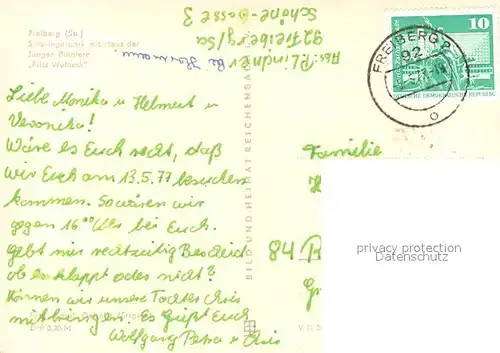 Freiberg (Sa.)
Scheringerpark mit Haus der
Jungen Pioniere
"Fritz Weineck"
Abs: P. Lindner
92 Freiberg/Sa
Schöne-Gasse 3
FREIBERG
92
10
DEUTSCHE DEMOKRATISCHE REPUBLIK
Liebe Monika u Helmut u
Veronika!
Wäre es Euch recht, daß
wir Euch am 13.5.77 besuchen
kommen. So wären wir
gegen 16 00 Uhr bei Euch.
gebt mir rechtzeitig Bescheid
ob es klappt oder nicht?
Können wir unsere Tochter
mitbringen. Es grüßt Euch
Wolfgang Petra u
BILD UND HEIMAT REICHENBACH
Familie
84
privacy protection
Datenschutz
EVP 0,20 M
V 11 0